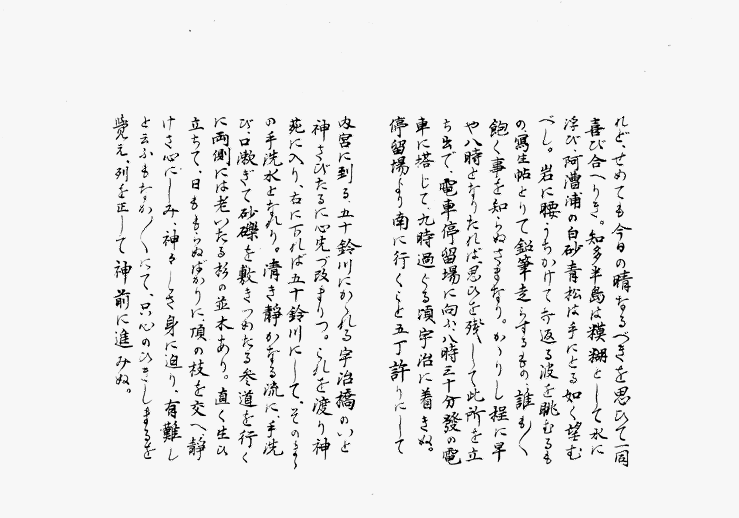 れど、せめても今日の晴なるべきを思ひて一同
喜び合へりき。知多半島は模糊として水に
浮び、阿漕浦の白砂青松は手にとる如く望む
べし。岩に腰うちかけて寄返る波を眺むるも
の、寫生帖とりて鉛筆走らするもの、誰も〱
飽く事を知らぬさまなり。かゝりし程に早
や八時となりたれば、思ひを残して此所を立
ち出で、電車停留場に向ふ。八時三十分發の電
車に搭じて、九時過ぐる頃宇治に着きぬ。
停留場より南に行くこと五丁許りにして
内宮に到る。五十鈴川にかゝれる宇治橋のいと
神さびたるに心先づ改まりつ。これを渡り神
苑に入り、右に下れば五十鈴川にして、そのまゝ
の手洗水となれり。清き静かなる流に、手洗
ひ、口漱ぎて砂礫を敷きつめたる参道を行く
に両側には老いたる杉の並木あり。直く生ひ
立ちて、日ももらぬばかりに、頂の枝を交へ、静
けさ心にしみ、神々しさ身に迫り、有難し
と云ふもなか〱にて、只心のひきしまるを
覺え、列を正して神前に進みぬ。